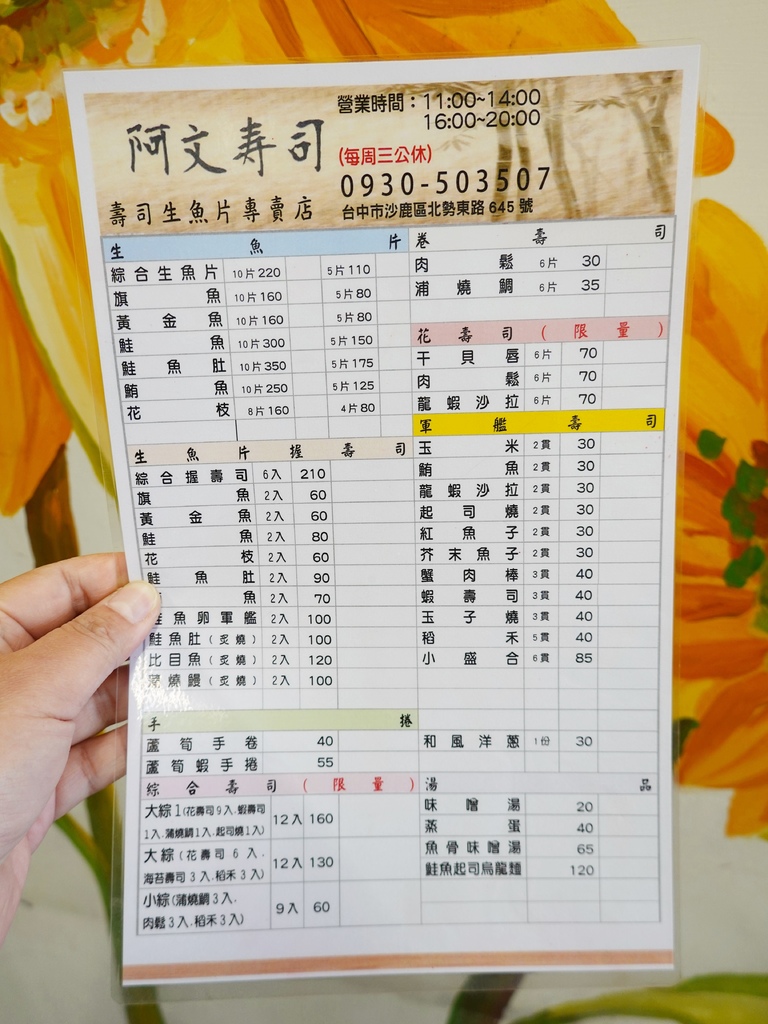 阿文寿司
壽司生魚片專賣店
營業時間：11:00~14:00
16:00~20:00
(每周三公休)
0930-503507
台中市沙鹿區北勢東路 645 號
生魚片
綜合生魚片 10片220 5片110
旗魚 10片160 5片80
黃金魚 10片160 5片80
鮭魚 10片300 5片150
鮭魚肚 10片350 5片175
鮪魚 10片250 5片125
花枝 8片160 4片80
生魚片握壽司
綜合握壽司 6入 210
旗魚 2入 60
黃金魚 2入 60
鮭魚 2入 80
花枝 2入 60
鮭魚肚 2入 90
魚 2入 70
鮭魚卵軍艦 2入 100
鮭魚肚(炙燒) 2入 100
比目魚(炙燒) 2入 120
蒲燒鰻(炙燒) 2入 100
手捲
蘆筍手卷 40
蘆筍蝦手捲 55
綜合壽司(限量)
大綜1(花壽司9入.蝦壽司
1入.蒲燒鯛1入.起司燒1入) 12入 160
大綜(花壽司6入.
海苔壽司3入.稻禾3入) 12入 130
小綜(蒲燒鯛3入.
肉鬆3入.稻禾3入) 9入 60
卷壽司
肉鬆 6片 30
浦燒鯛 6片 35
花壽司(限量)
干貝唇 6片 70
肉鬆 6片 70
龍蝦沙拉 6片 70
軍艦壽司
玉米 2貫 30
鮪魚 2貫 30
龍蝦沙拉 2貫 30
起司燒 2貫 30
紅魚子 2貫 30
芥末魚子 2貫 30
蟹肉棒 3貫 40
蝦壽司 3貫 40
玉子燒 3貫 40
稻禾 5貫 40
小盛合 6貫 85
和風洋蔥 1份 30
湯品
味噌湯 20
蒸蛋 40
魚骨味噌湯 65
鮭魚起司烏龍麵 120